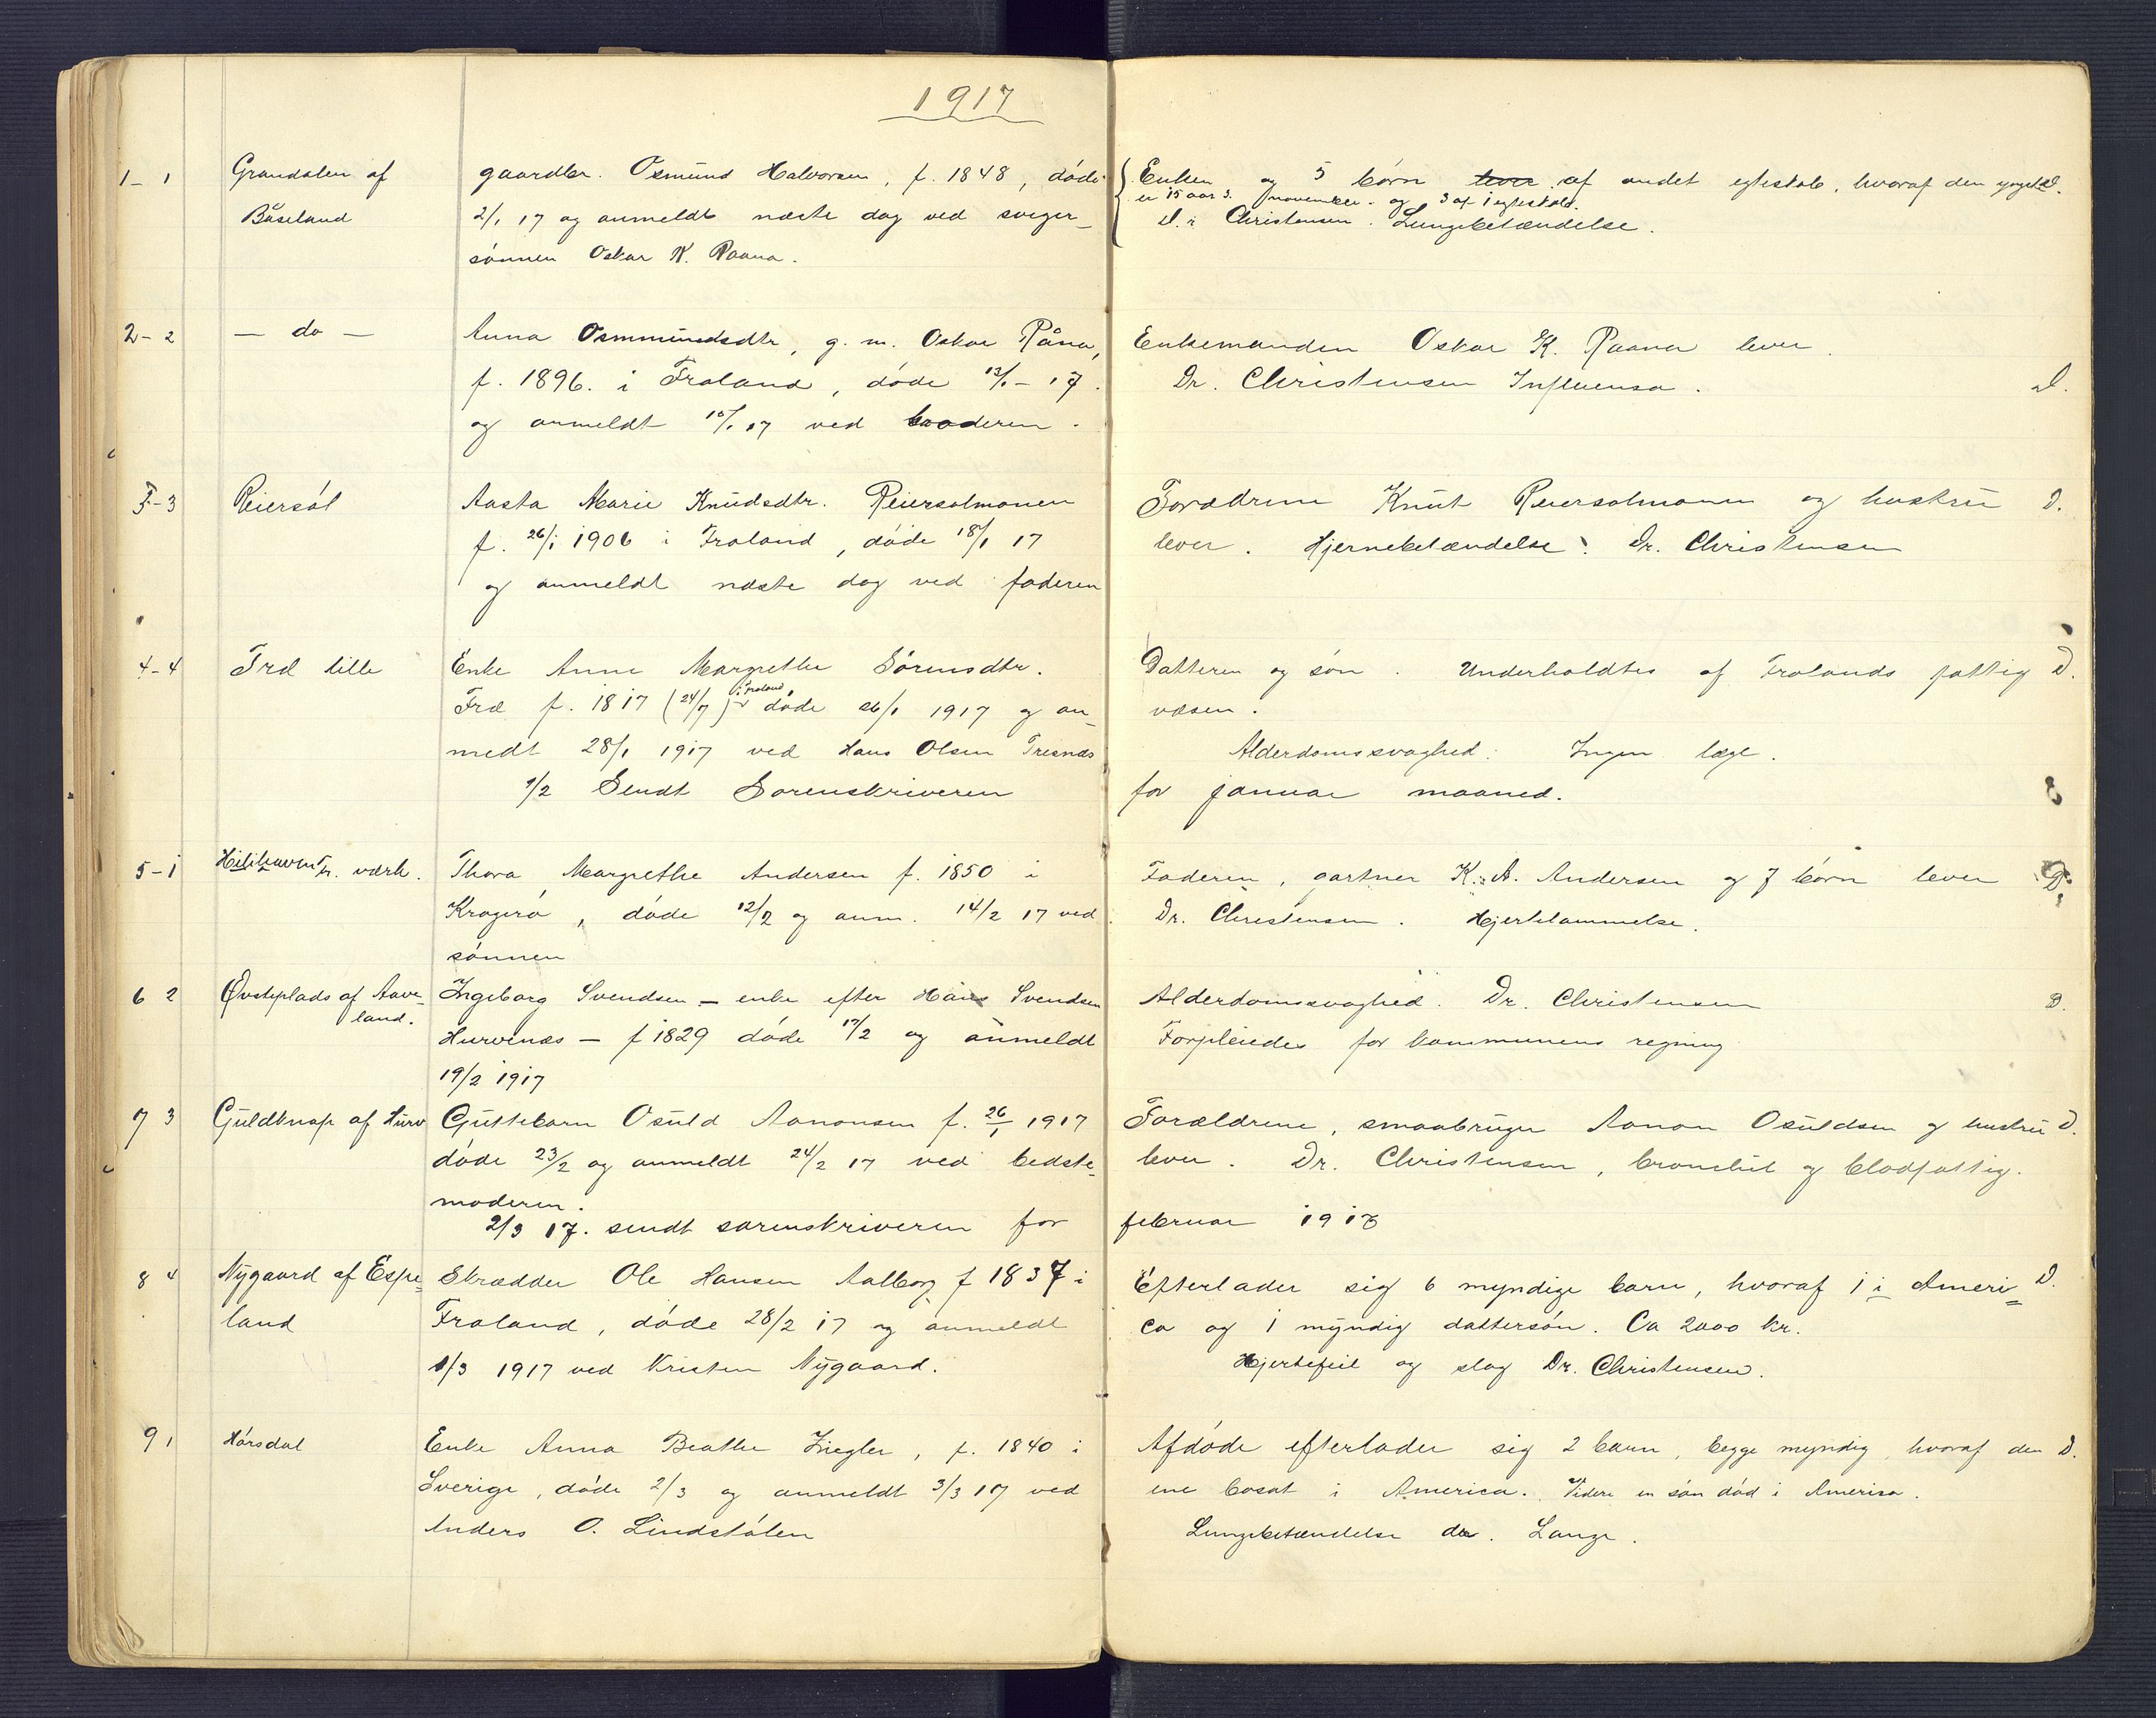 1917
1 - 1
Grandalen af
Båseland
gaardbr. Osmund Halvorsen, f. 1848, døde
2/1 17 og anmeldt næste dag ved sviger-
sønnen Oskar K. Raana.
Enken og 5 børn lever af andet egteskab, hvoraf den yngste D.
er 15 aar 3. november. og 3 af 1 egteskab.
Dr. Christensen. Lungebetændelse.
2 - 2
— do —
Anna Osmmundsdtr, g. m. Oskar Råna,
f. 1896. i Froland, døde 13/1 - 17.
og anmeldt 15/1 17 ved broderen.
Enkemanden Oskar K. Raana lever.
Dr. Christensen Influensa. D.
3 - 3
Reiersøl
Aasta Marie Knudsdtr. Reiersølmonen
f. 26/1 1906 i Froland, døde 18/1 17
og anmeldt næste dag ved faderen
Forældrene Knut Reiersølmonen og hustru D.
lever. Hjernebetændelse. Dr. Christensen
4 - 4
Frd lille
Enke Anne Margrethe Sørensdtr.
Fræ f. 1817 (24/7) i Froland, døde 26/1 1917 og an-
medt 28/1 1917 ved Hans Olsen Tresnæs
1/2 Sendt Sorenskriveren
Datteren og søn. Underholdtes af Frolands fattig D.
væsen.
Alderdomssvaghed: Ingen læge.
for januar maaned.
5 - 1
Fr. værk.
Thora Margrethe Andersen f. 1850 i
Kragerø, døde 12/2 og anm. 14/2 17 ved
sønnen
Faderen, gartner K. A. Andersen og 7 børn lever D.
Dr. Christensen. Hjertelammelse.
6 2
Øvsteplads af Aave-
land.
Ingeborg Svendsen — enke efter Hans Svendsen
Hurvenæs — f 1829 døde 17/2 og anmeldt
19/2 1917
Alderdomssvaghed. Dr. Christensen D.
Forpleiedes for kommunens regning
7 3
Guldknap af Hurv
Guttebarn Osuld Aanonsen f. 26/1 1917
døde 23/2 og anmeldt 24/2 17 ved bedste-
moderen.
2/3 17. sendt sorenskriveren for
Forældrene, smaabruger Aanon Osuldsen og hustru D.
lever. Dr. Christensen, bronchit og blodfattig.
februar 1917
8 4
Nygaard af Espe-
land
Skrædder Ole Hansen Aalborg f 1837 i
Froland, døde 28/2 17 og anmeldt
1/3 1917 ved Kristen Nygaard.
Efterlader sig 6 myndige barn, hvoraf 1 i Ameri= D.
ca og 1 myndig dattersøn. Ca 2000 kr.
Hjertefeil og slag Dr. Christensen.
9 1
Hørsdal
Enke Anna Beathe Ziegler, f. 1840 i
Sverige, døde 2/3 og anmeldt 3/3 17 ved
Anders O. Lindstølen
Afdøde efterlader sig 2 barn, begge myndig, hvoraf den D.
ene bosat i America. Videre en søn død i America.
Lungebetændelse dr. Lange.